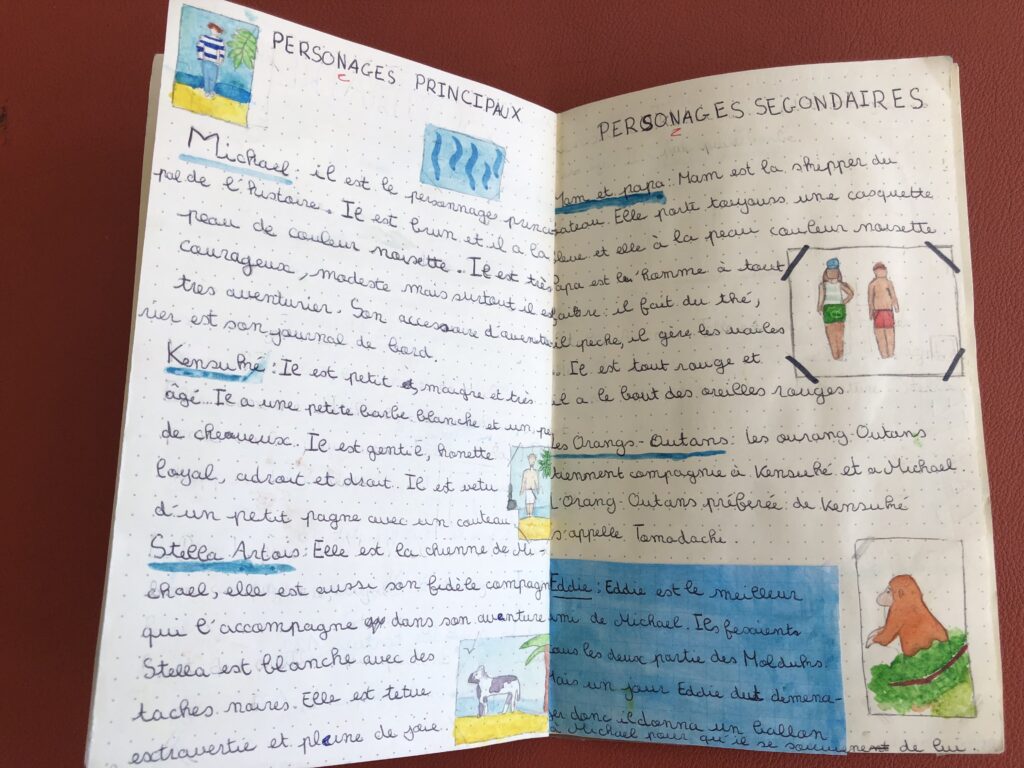 PERSONAGES PRINCIPAUX
Michael : il est le personnage princi
pal de l'histoire. Il est brun et il a la
peau de couleur noisette. Il est très
courageux, modeste mais surtout il es
très aventurier. Son accessoire d'aventu
rier est son journal de bord.
Kensuké : Il est petit , maigre et très
âgé. Il a une petite barbe blanche et un pe
de cheveux. Il est gentil, honette
loyal, adroit et droit. Il est vetu
d'un petit pagne avec un couteau
Stella Artois : Elle est la chienne de Mi-
chael, elle est aussi son fidèle compagn
qui l'accompagne dans son aventure
Stella est blanche avec des
taches noires. Elle est tetue
extravertie et pleine de joie.
PERSONAGES SEGONDAIRES
Mam et papa : Mam est la skipper du
ateau. Elle porte toujours une casquette
leue et elle à la peau couleur noisette
Papa est l'homme à tout
faire : il fait du thé,
il pèche, il gère les voiles
. Il est tout rouge et
il a le bout des oreilles rouges.
Les Orangs-Outans : les ourang-Outans
tiennent compagnie à Kensuké et a Michael
L'Orang-Outans préferée de Kensuké
s'appelle Tomodachi.
Eddie : Eddie est le meilleur
ami de Michael. Ils fesaients
tous les deux partie des Molduks.
Mais un jour Eddie dut démena-
ger donc il donna un ballon
à Michael pour qu'il se souvienent de lui.